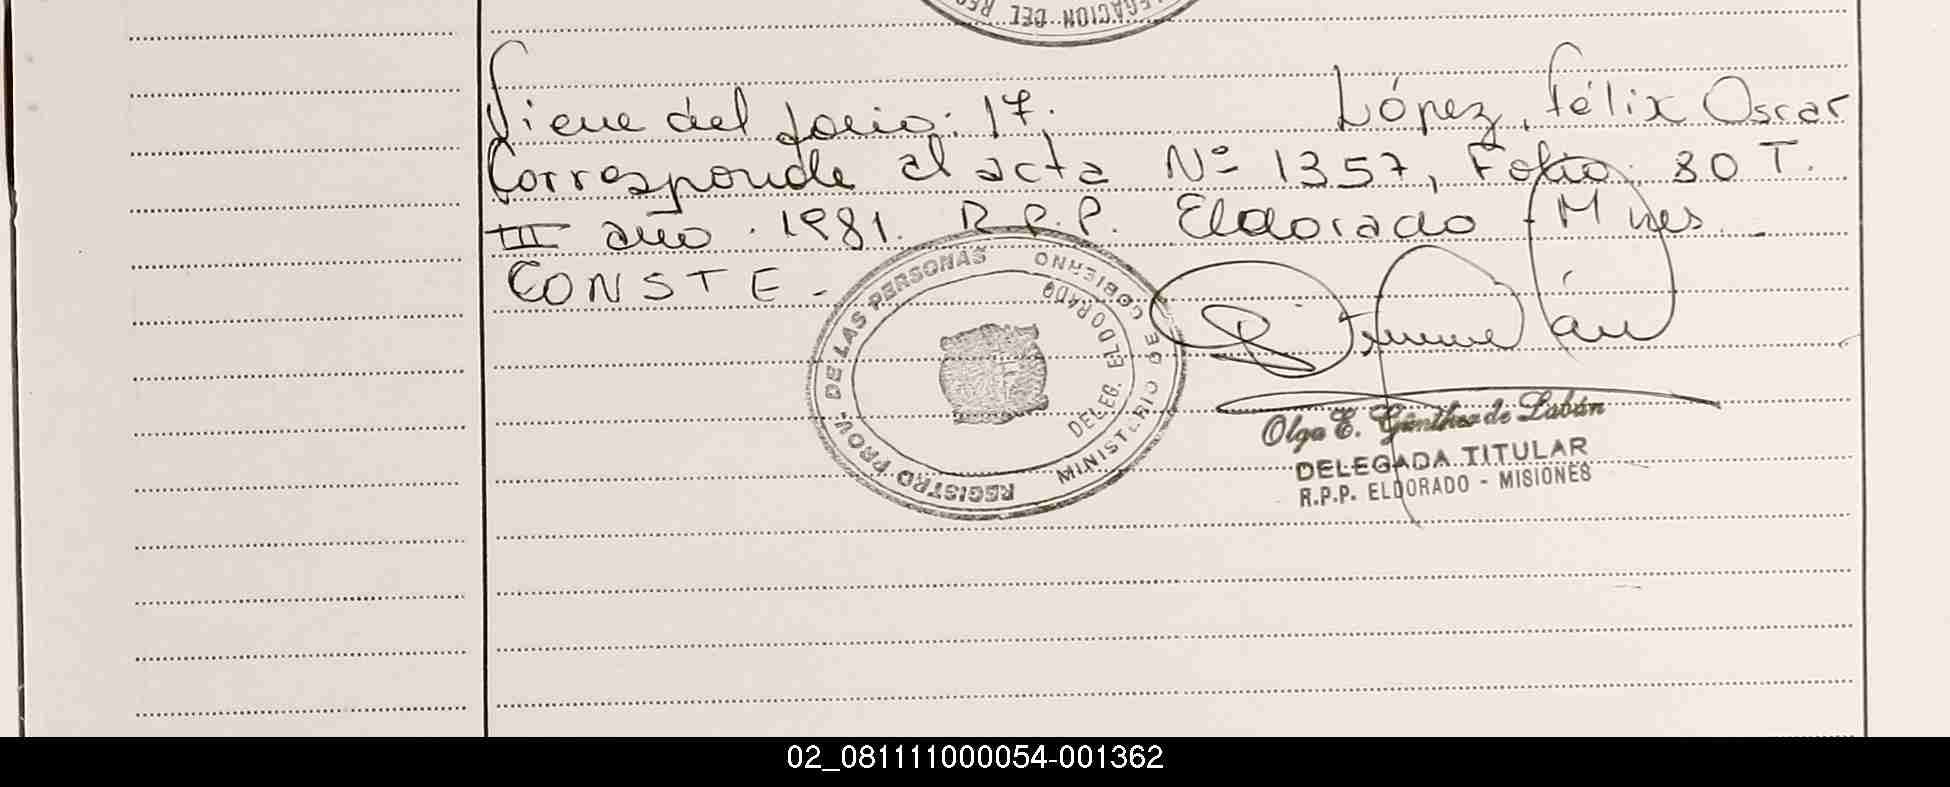 DELEGACION DEL REG
Viene del folio: 17. López, Félix Oscar
Corresponde al acta Nº 1357, Folio: 80 T.
III año. 1981. R.P.P. Eldorado - Mnes.
CONSTE.-
REGISTRO PROV. DE LAS PERSONAS
MINISTERIO DE GOBIERNO
DELEG. ELDORADO
Olga E. Günther de Labán
DELEGADA TITULAR
R.P.P. ELDORADO - MISIONES
02_081111000054-001362